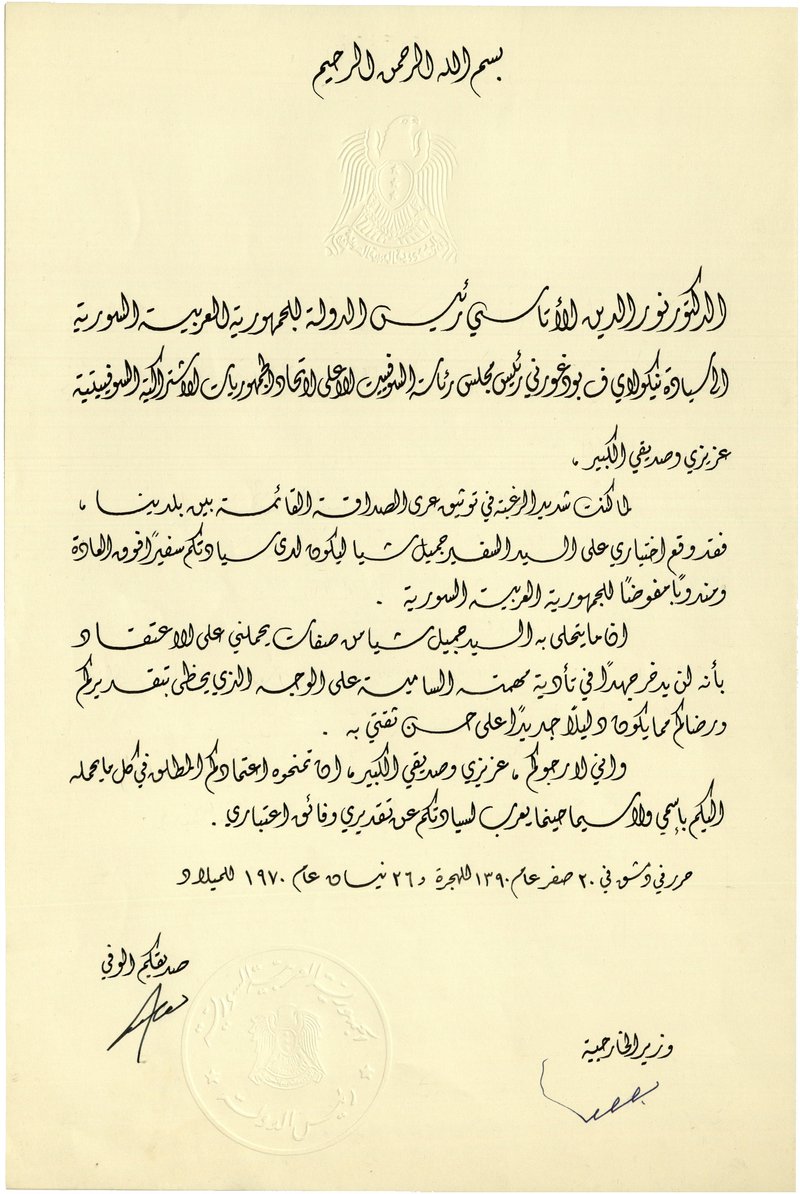 بسم الله الرحمن الرحيم
الدكتور نور الدين الأتاسي رئيس الدولة للجمهورية العربية السورية
الى سيادة نيكولاي ف بودغورني رئيس مجلس رئاسة السوفييت الاعلى لاتحاد الجمهوريات الاشتراكية السوفييتية
عزيزي وصديقي الكبير ،
لما كنت شديد الرغبة في توثيق عرى الصداقة القائمة بين بلدينا ،
فقد وقع اختياري على السيد السفير جميل شيا ليكون لدى سيادتكم سفيرًا فوق العادة
ومندوبًا مفوضًا للجمهورية العربية السورية .
ان ما يتحلى به السيد جميل شيا من صفات يحملني على الاعتقاد
بأنه لن يدخر جهدًا في تأدية مهمته السامية على الوجه الذي يحظى بتقديركم
ورضاكم مما يكون دليلًا جديدًا على حسن ثقتي به .
واني لارجوكم ، عزيزي وصديقي الكبير ، ان تمنحوه اعتمادكم المطلق في كل ما يحمله
اليكم بإسمي ولاسيما حينما يعرب لسيادتكم عن تقديري وفائق اعتباري .
حرر في دمشق في ٢٠ صفر عام ١٣٩٠ للهجرة و ٢٦ نيسان عام ١٩٧٠ للميلاد
صديقكم الوفي
الجمهورية العربية السورية
رئيس الدولة
وزير الخارجية